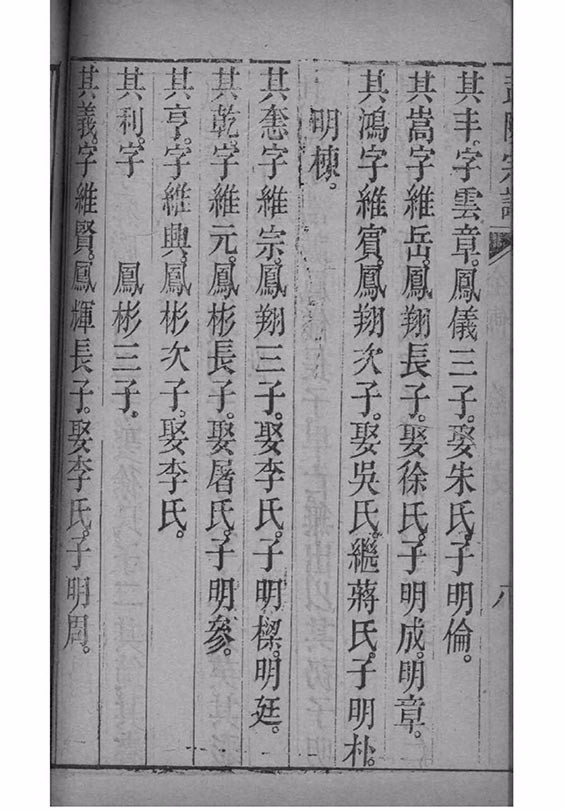 宗譜
其丰字雲章。鳳儀三子。娶朱氏。子明倫。
其嵩字維岳。鳳翔長子。娶徐氏。子明成。明章。
其鴻字維賓。鳳翔次子。娶吳氏。繼蔣氏。子明朴。
明棟。
其憲字維宗。鳳翔三子。娶李氏。子明樑。明廷。
其乾字維元。鳳彬長子。娶屠氏。子明參。
其亨字維興。鳳彬次子。娶李氏。
其利。字　鳳彬三子。
其義。字維賢。鳳輝長子。娶李氏。子明周。